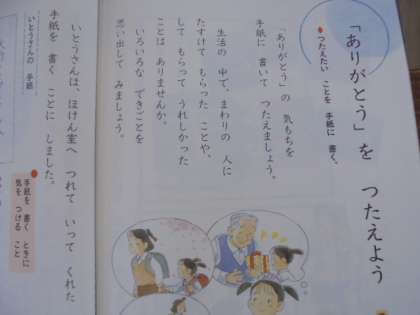 「ありがとう」を つたえよう
つたえたい ことを 手紙に 書く。
「ありがとう」の 気もちを
手紙に 書いて つたえましょう。
生活の 中で、まわりの 人に
たすけて もらった ことや、
して もらって うれしかった
ことは ありませんか。
いろいろな できごとを
思い出して みましょう。
いとうさんは、ほけん室へ つれて いって くれた
手紙を 書く ことに しました。
手紙を 書く ときに
気を つける こと
いとうさんの 手紙